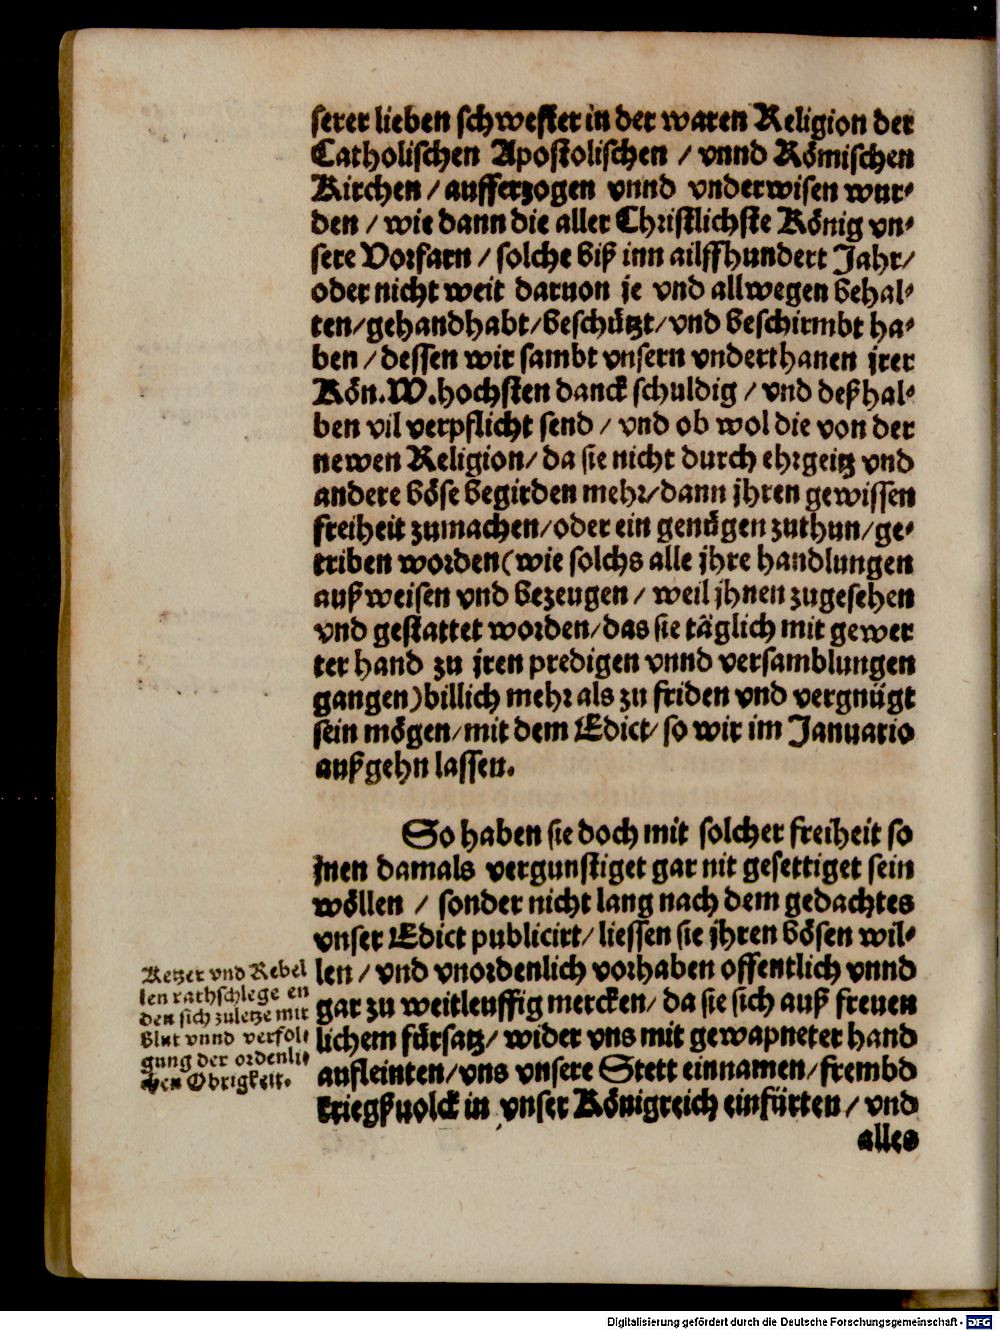 serer lieben schwester in der waren Religion der
Catholischen Apostolischen / vnnd Römischen
Kirchen / aufferzogen vnnd vnderwisen wur⸗
den / wie dann die aller Christlichste König vn⸗
sere Vorfarn / solche biß inn ailffhundert Jahr/
oder nicht weit daruon je vnd allwegen behal⸗
ten/gehandhabt/beschützt/vnd beschirmbt ha⸗
ben / dessen wir sambt vnsern vnderthanen jrer
Kön.W.hochsten danck schuldig / vnd deßhal⸗
ben vil verpflicht send / vnd ob wol die von der
newen Religion/ da sie nicht durch ehrgeitz vnd
andere böse begirden mehr/dann jhren gewissen
freiheit zumachen/oder ein genügen zuthun/ge⸗
triben worden(wie solchs alle jhre handlungen
außweisen vnd bezeugen / weil jhnen zugesehen
vnd gestattet worden/das sie täglich mit gewer
ter hand zu jren predigen vnnd versamblungen
gangen)billich mehr als zu friden vnd vergnügt
sein mögen/mit dem Edict/ so wir im Januario
außgehn lassen.
So haben sie doch mit solcher freiheit so
jnen damals vergunstiget gar nit gesettiget sein
wöllen / sonder nicht lang nach dem gedachtes
vnser Edict publicirt/ liessen sie jhren bösen wil⸗
len / vnd vnordenlich vorhaben offentlich vnnd
gar zu weitleuffig mercken/ da sie sich auß freuen
lichem fürsatz/ wider vns mit gewapneter hand
aufleinten/vns vnsere Stett einnamen/frembd
kriegßuolck in vnser Königreich einfürten / vnd
alles
Ketzer vnd Rebel
len rathschlege en
den sich zuletze mit
Blut vnnd verfol⸗
gung der ordenli⸗
chen Obrigkeit.
Digitalisierung gefördert durch die Deutsche Forschungsgemeinschaft - DFG